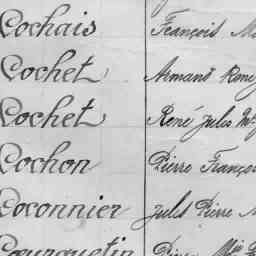 Cochais François
Cochet Armand René
Cochet René Jules
Cochon Pierre Franço
Coconnier Jules Pierre
Courquetin Pierre